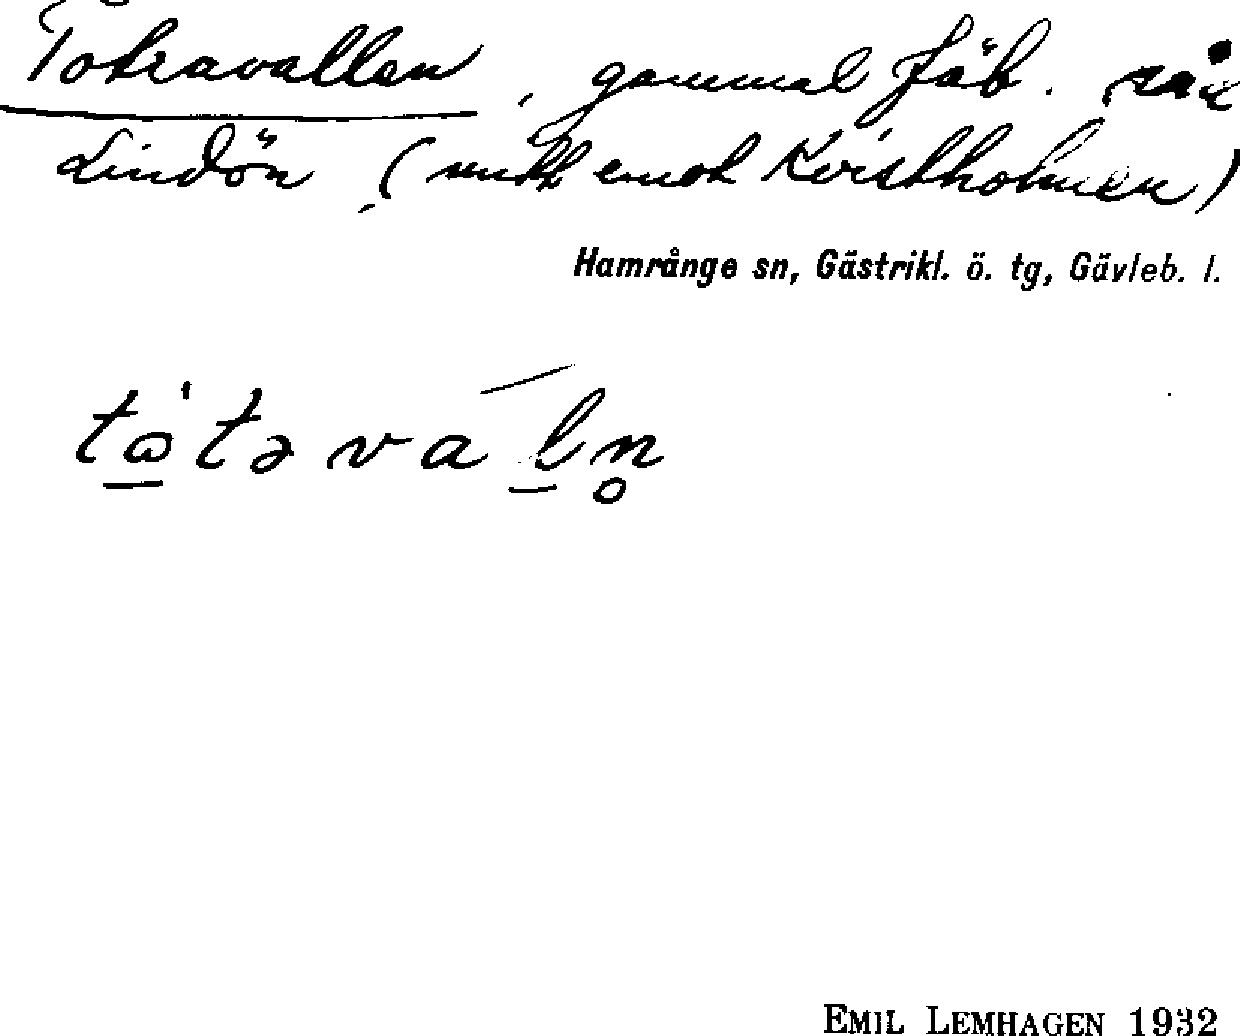 Totravallen, gammal fäb.
Lindön (mitt emot Kvistholmen)
Hamrånge sn, Gästrikl. ö. tg, Gävleb. l.
tὼ̲təvál̲n̥
EMIL LEMHAGEN 1932